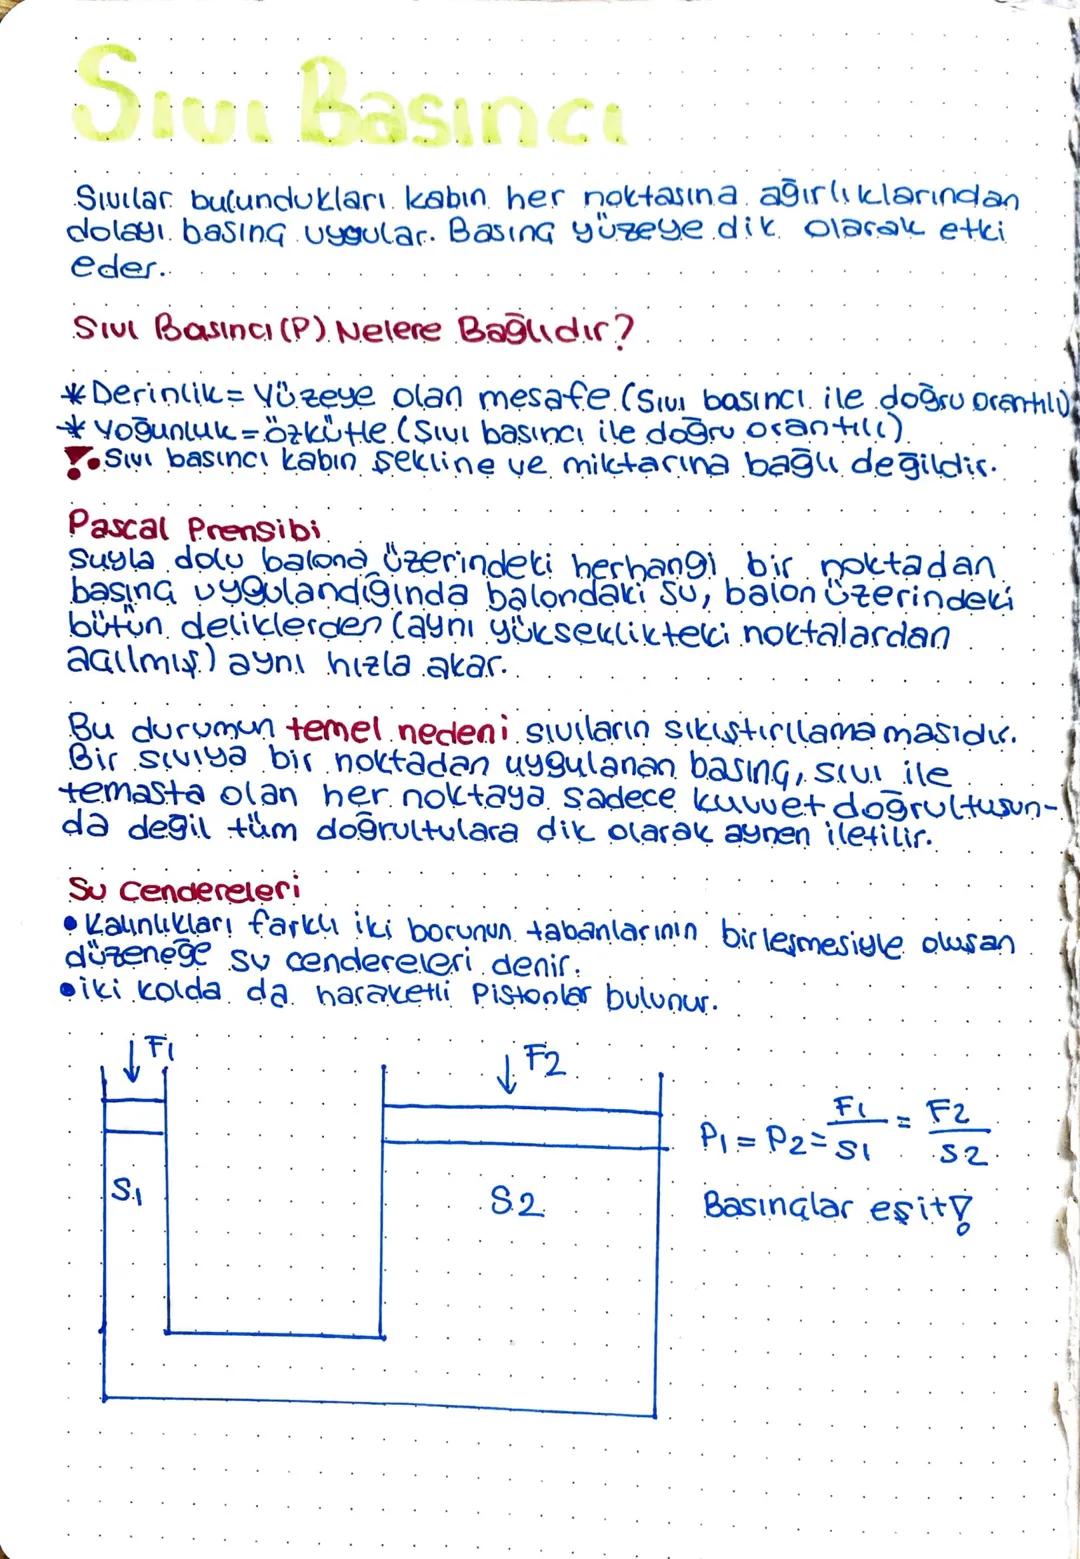 Sıvı Basıncı
Sıvılar bulundukları kabın her noktasına ağırlıklarından
dolayı basınç uygular. Basınç yüzeye dik olarak etki
eder.
Sıvı Basıncı (P) Nelere Bağlıdır?
* Derinlik = Yüzeye olan mesafe (Sıvı basıncı ile doğru orantılı)
* Yoğunluk = özkütle (Sıvı basıncı ile doğru orantılı)
! • Sıvı basıncı kabın şekline ve miktarına bağlı değildir.
Pascal Prensibi
Suyla dolu balona üzerindeki herhangi bir noktadan
basınç uygulandığında balondaki su, balon üzerindeki
bütün deliklerden (aynı yükseklikteki noktalardan
açılmış) aynı hızla akar.
Bu durumun temel nedeni sıvıların sıkıştırılamamasıdır.
Bir sıvıya bir noktadan uygulanan basınç, sıvı ile
temasta olan her noktaya sadece kuvvet doğrultusun-
da değil tüm doğrultulara dik olarak aynen iletilir.
Su Cendereleri
• Kalınlıkları farklı iki borunun tabanlarının birleşmesiyle oluşan
düzeneğe su cendereleri denir.
• iki kolda da haraketli pistonlar bulunur.
↓ F1
↓ F2
S1
S2
P1 = P2 = F1/S1 = F2/S2
Basınçlar eşit!